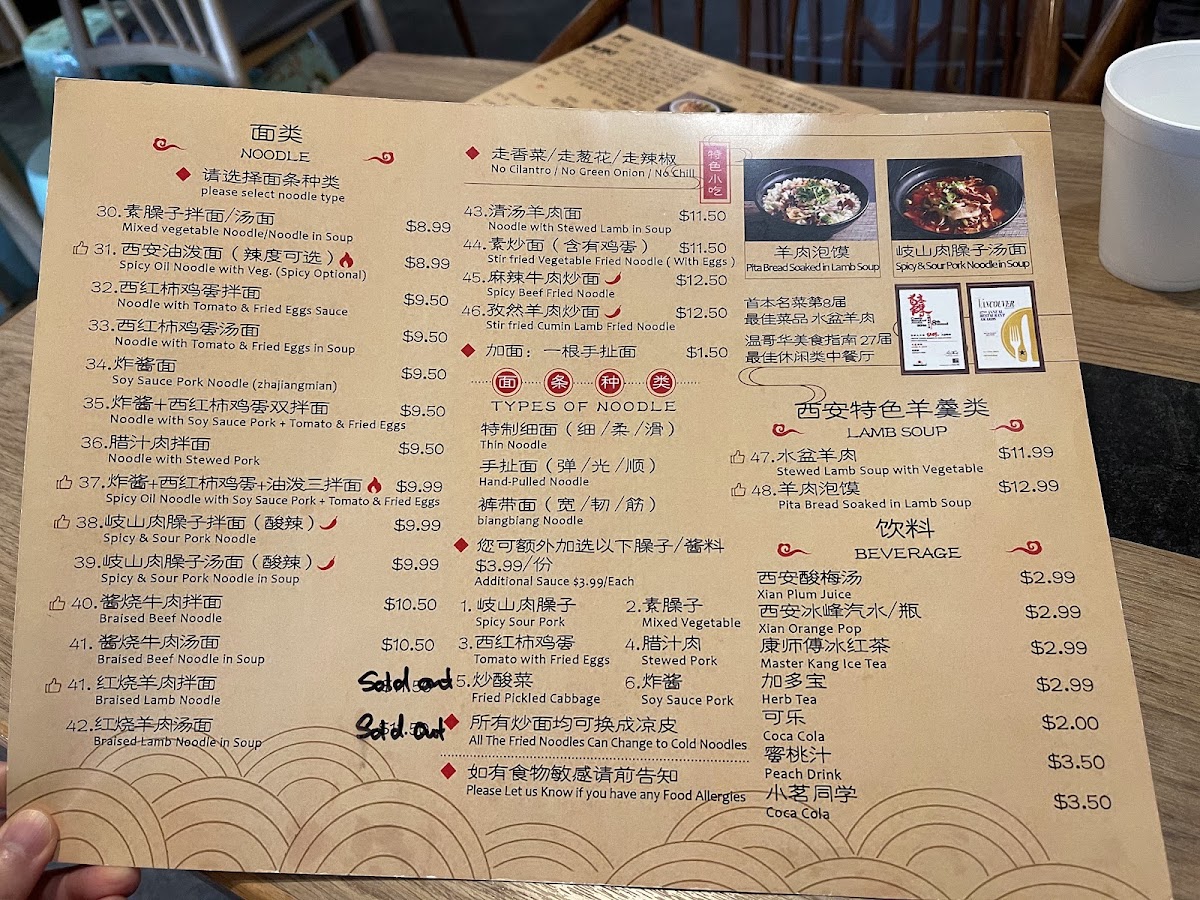 面类
NOODLE
请选择面条种类
please select noodle type
30.素臊子拌面/汤面 $8.99
Mixed vegetable Noodle/Noodle in Soup
31.西安油泼面（辣度可选） $8.99
Spicy Oil Noodle with Veg. (Spicy Optional)
32.西红柿鸡蛋拌面 $9.50
Noodle with Tomato & Fried Eggs Sauce
33.西红柿鸡蛋汤面 $9.50
Noodle with Tomato & Fried Eggs in Soup
34.炸酱面 $9.50
Soy Sauce Pork Noodle (zhajiangmian)
35.炸酱+西红柿鸡蛋双拌面 $9.50
Noodle with Soy Sauce Pork + Tomato & Fried Eggs
36.腊汁肉拌面 $9.50
Noodle with Stewed Pork
37.炸酱+西红柿鸡蛋+油泼三拌面 $9.99
Spicy Oil Noodle with Soy Sauce Pork + Tomato & Fried Eggs
38.岐山肉臊子拌面（酸辣） $9.99
Spicy & Sour Pork Noodle
39.岐山肉臊子汤面（酸辣） $9.99
Spicy & Sour Pork Noodle in Soup
40.酱烧牛肉拌面 $10.50
Braised Beef Noodle
41.酱烧牛肉汤面 $10.50
Braised Beef Noodle in Soup
41.红烧羊肉拌面 Sold out
Braised Lamb Noodle
42.红烧羊肉汤面 Sold out
Braised Lamb Noodle in Soup
走香菜/走葱花/走辣椒
No Cilantro / No Green Onion / No Chili
43.清汤羊肉面 $11.50
Noodle with Stewed Lamb in Soup
44.素炒面（含有鸡蛋） $11.50
Stir fried Vegetable Fried Noodle ( With Eggs )
45.麻辣牛肉炒面 $12.50
Spicy Beef Fried Noodle
46.孜然羊肉炒面 $12.50
Stir fried Cumin Lamb Fried Noodle
加面：一根手扯面 $1.50
面条种类
TYPES OF NOODLE
特制细面（细/柔/滑）
Thin Noodle
手扯面（弹/光/顺）
Hand-Pulled Noodle
裤带面（宽/韧/筋）
biangbiang Noodle
您可额外加选以下臊子/酱料
$3.99/份
Additional Sauce $3.99/Each
1. 岐山肉臊子 2.素臊子
Spicy Sour Pork Mixed Vegetable
3.西红柿鸡蛋 4.腊汁肉
Tomato with Fried Eggs Stewed Pork
5.炒酸菜 6.炸酱
Fried Pickled Cabbage Soy Sauce Pork
所有炒面均可换成凉皮
All The Fried Noodles Can Change to Cold Noodles
如有食物敏感请前告知
Please Let us Know if you have any Food Allergies
特色小吃
羊肉泡馍
Pita Bread Soaked in Lamb Soup
岐山肉臊子汤面
Spicy & Sour Pork Noodle in Soup
首本名菜第8届
最佳菜品 水盆羊肉
温哥华美食指南 27届
最佳休闲类中餐厅
VANCOUVER
西安特色羊羹类
LAMB SOUP
47.水盆羊肉 $11.99
Stewed Lamb Soup with Vegetable
48.羊肉泡馍 $12.99
Pita Bread Soaked in Lamb Soup
饮料
BEVERAGE
西安酸梅汤 $2.99
Xian Plum Juice
西安冰峰汽水/瓶 $2.99
Xian Orange Pop
康师傅冰红茶 $2.99
Master Kang Ice Tea
加多宝 $2.99
Herb Tea
可乐 $2.00
Coca Cola
蜜桃汁 $3.50
Peach Drink
小茗同学 $3.50
Coca Cola